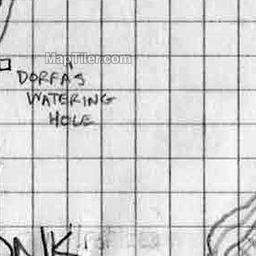 MapTiler.com
DORFAS
WATERING
HOLE